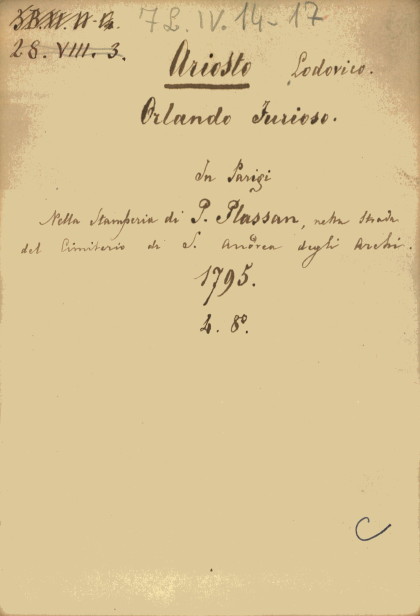 72.IV.14-17
28. VIII. 3.
Ariosto Lodovico.
Orlando Furioso.
In Parigi
Nella Stamperia di P. Plassan, nella Strada
del Cimiterio di S. Andrea degli Archi.
1795.
4. 8º.
C